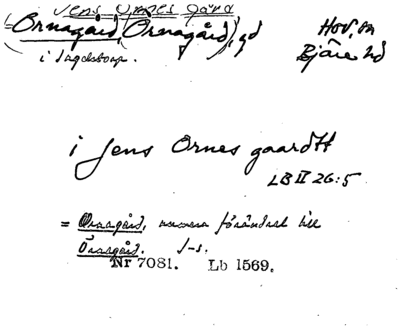 Jens Ornes gård
= Ornagård, (Örnagård), gd Hov sn
i Ingelstorp. Bjäre hd
i Jens Ornes gaardtt
LB II 26:5
= Ornagård, numera förändrat till
Örnagård. J-s.
Nr 7081. Lb 1569.